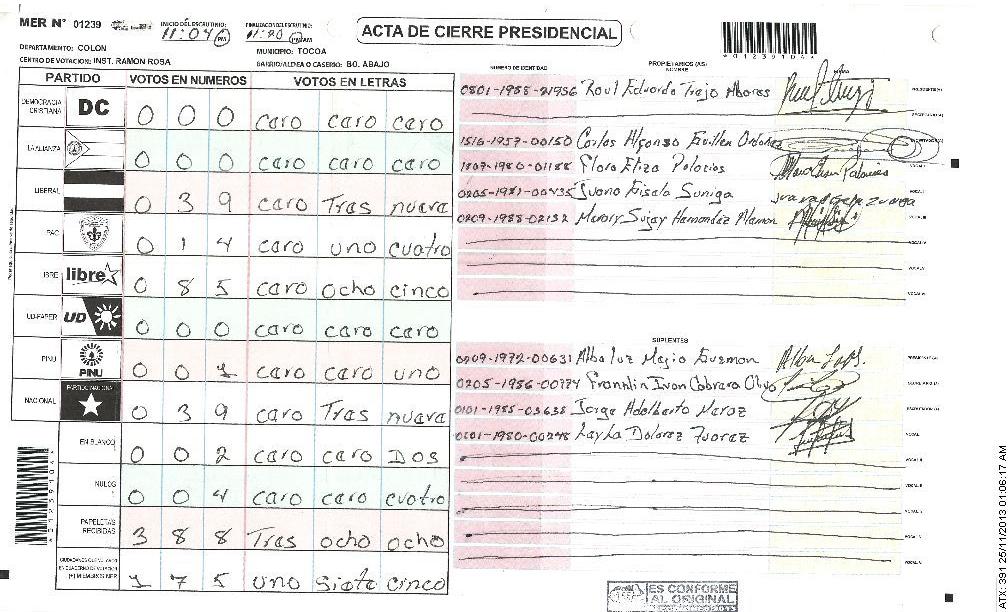 MER N° 01239
INICIO DEL ESCRUTINIO:
11:04 PM
FINALIZACION DEL ESCRUTINIO:
11:20 PM AM
ACTA DE CIERRE PRESIDENCIAL
*01239104*
DEPARTAMENTO: COLON
MUNICIPIO: TOCOA
CENTRO DE VOTACION: INST. RAMON ROSA
BARRIO/ALDEA O CASERIO: BO. ABAJO
PARTIDO VOTOS EN NUMEROS VOTOS EN LETRAS
DEMOCRACIA CRISTIANA DC 0 0 0 caro caro caro
LA ALIANZA 0 0 0 caro caro caro
LIBERAL 0 3 9 caro Tras nuava
PAC 0 1 4 caro uno cuatro
LIBRE libre 0 8 5 caro ocho cinco
UD-FAPER UD 0 0 0 caro caro caro
PINU PINU 0 0 1 caro caro uno
NACIONAL PARTIDO NACIONAL 0 3 9 caro Tras nuava
EN BLANCO 0 0 2 caro caro Dos
NULOS 0 0 4 caro caro cuatro
PAPELETAS RECIBIDAS 3 8 8 Tras ocho ocho
1 7 5 uno siate cinco
NUMERO DE IDENTIDAD PROPIETARIOS (AS) NOMBRE FIRMA
0801-1988-21956 Raul Eduardo Trejo PRESIDENTE(A)
SECRETARIO (A)
1516-1957-00150 Carlos Alfonso Guillen Ordoñez ESCRUTADOR(A)
1807-1980-01188 Flora Eliza Palacios VOCAL I
Juana Gisela Suniga VOCAL II
0209-1988-02132 Hernandez VOCAL III
VOCAL IV
VOCAL V
VOCAL VI
SUPLENTES
0209-1972-00631 Alba luz Guzman PRESIDENTE(A)
0205-1986-00774 Franklin Ivan Cabrera SECRETARIO (A)
0101-1985-03638 Jorge Adalberto ESCRUTADOR(A)
Layla Dolorez Juarez VOCAL I
VOCAL II
VOCAL III
VOCAL IV
VOCAL V
VOCAL VI
ES CONFORME
AL ORIGINAL
*01239104*
25/11/2013 01:06:17 AM